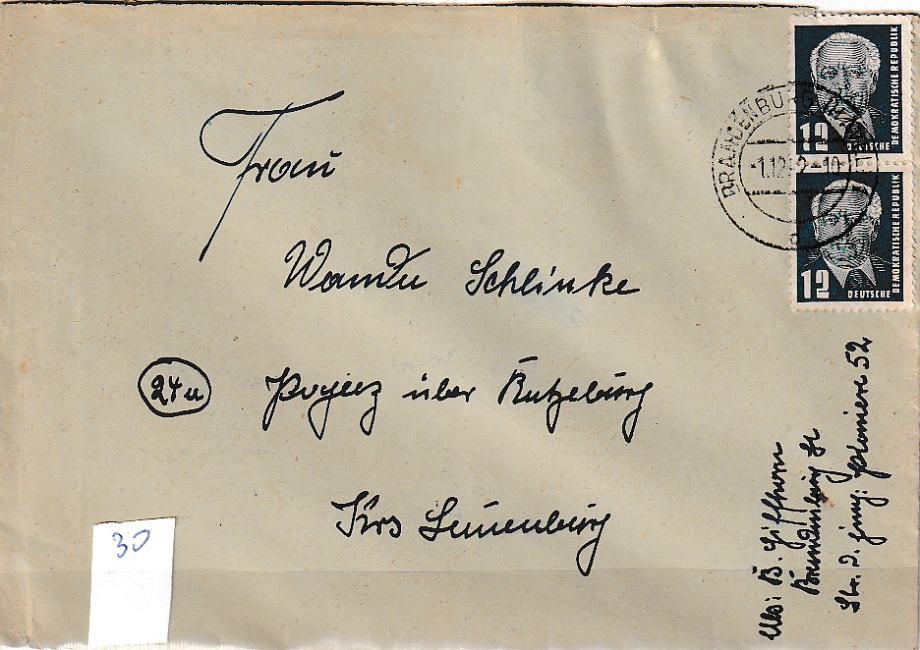 DEUTSCHE DEMOKRATISCHE REPUBLIK
12
DEUTSCHE DEMOKRATISCHE REPUBLIK
12
BRANDENBURG
-1.12.52-10
Frau
Wanda Schlinke
24a
Pogeez über Ratzeburg
Krs Lauenburg
30
Abs: B. Giffhorn
Brandenburg H
Str. d. Jung. Pioniere 52